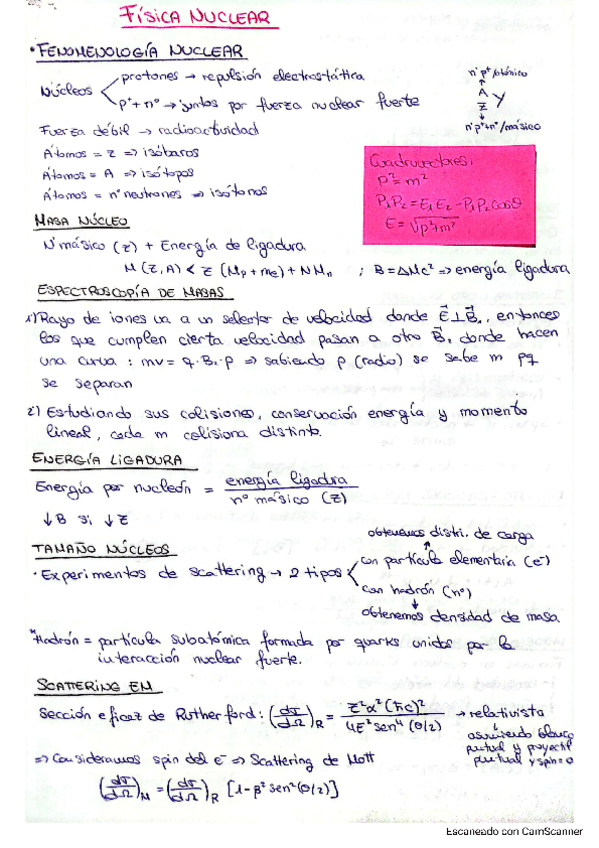 FÍSICA NUCLEAR
• FENOMENOLOGÍA NUCLEAR
Núcleos < protones → repulsión electrostática
p⁺ + n⁰ → juntos por fuerza nuclear fuerte
nº p⁺/atómico
↑
A
Z Y
↓
nº p⁺+n⁰/másico
Fuerza débil → radioactividad
Átomos = Z => isóbaros
Átomos = A => isótopos
Átomos = nº neutrones => isótonos
Cuadrivectores:
p² = m²
P₁P₂ = E₁E₂ - P₁P₂ cosθ
E = √p²+m²
MASA NÚCLEO
Nº másico (Z) + Energía de ligadura
M(Z,A) < Z(Mp+me) + NMn ; B = ΔMc² => energía ligadura
ESPECTROSCOPÍA DE MASAS
1) Rayo de iones va a un selector de velocidad donde E⃗ ⊥ B⃗₁, entonces
los que cumplen cierta velocidad pasan a otro B⃗₂ donde hacen
una curva : mv = q·B₂·ρ => sabiendo ρ (radio) se sabe m pq
se separan
2) Estudiando sus colisiones, conservación energía y momento
lineal, cada m colisiona distinto.
ENERGÍA LIGADURA
Energía por nucleón = energía ligadura / nº másico (Z)
↓B si ↓Z
TAMAÑO NÚCLEOS
• Experimentos de scattering → 2 tipos <
obtenemos distri. de carga
↑
con partícula elementaria (e⁻)
con hadrón (n⁰)
↓
obtenemos densidad de masa
*Hadrón = partícula subatómica formada por quarks unidos por la
interacción nuclear fuerte.
SCATTERING EM
Sección eficaz de Rutherford: (dσ/dΩ)R = Z²α²(ħc)² / 4E² sen⁴(θ/2) → relativista
↓
asumiendo blanco
puntual y proyectil
puntual y spin=0
=> Consideramos spin del e⁻ => Scattering de Mott
(dσ/dΩ)M = (dσ/dΩ)R [1-β² sen²(θ/2)]
Escaneado con CamScanner